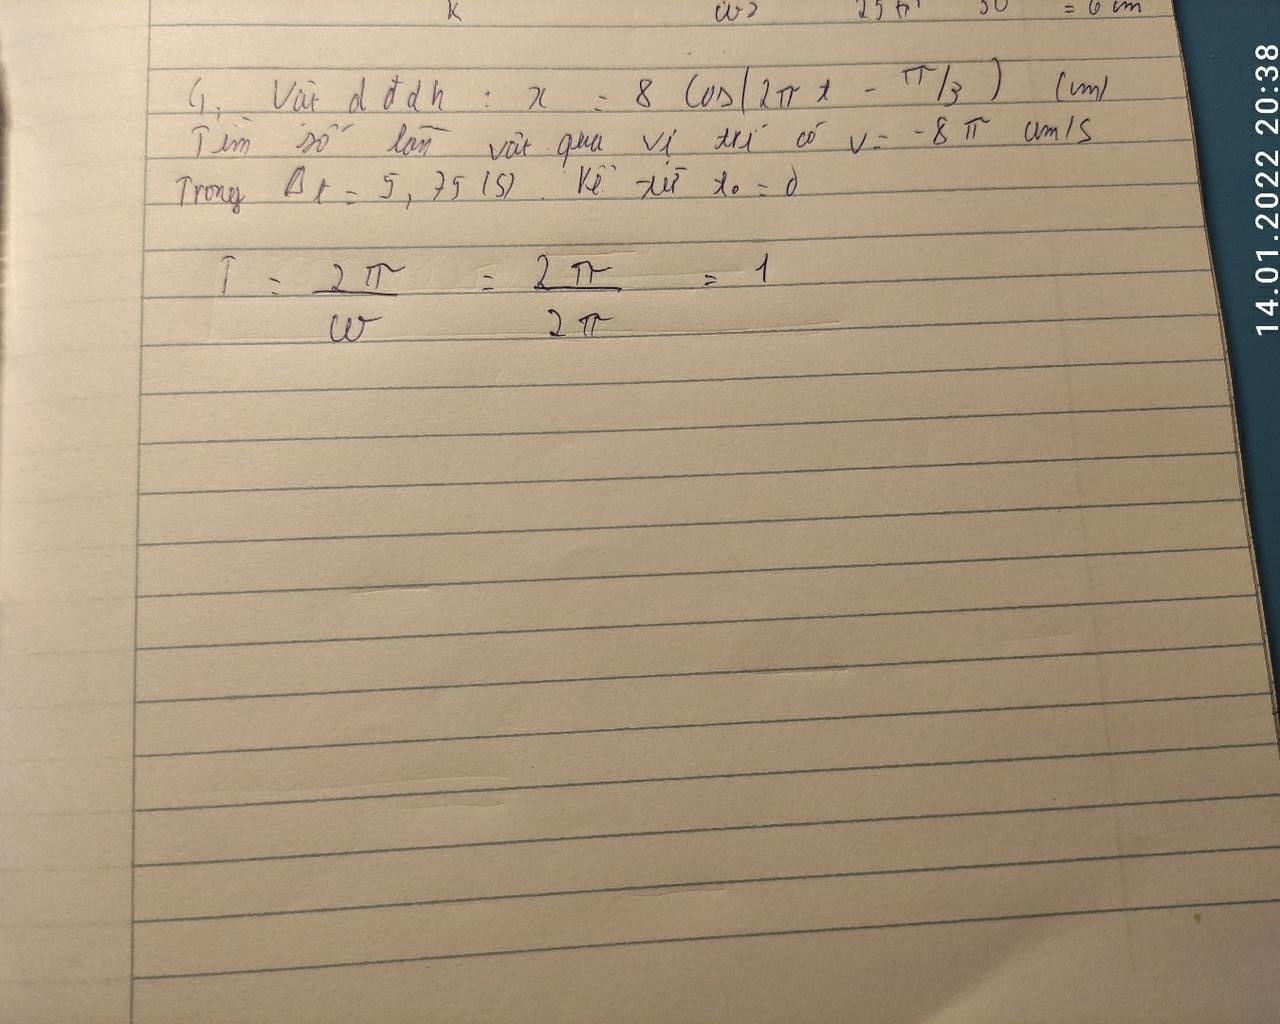 k ω2 25π² 50 = 6 cm
4, Vật dđdh : x = 8 Cos(2πt - π/3) (cm)
Tìm số lần vật qua vị trí có v = -8π cm/s
Trong Δt = 5,75 (s). Kể từ t₀ = 0
T = 2π/ω = 2π/2π = 1
14.01.2022 20:38